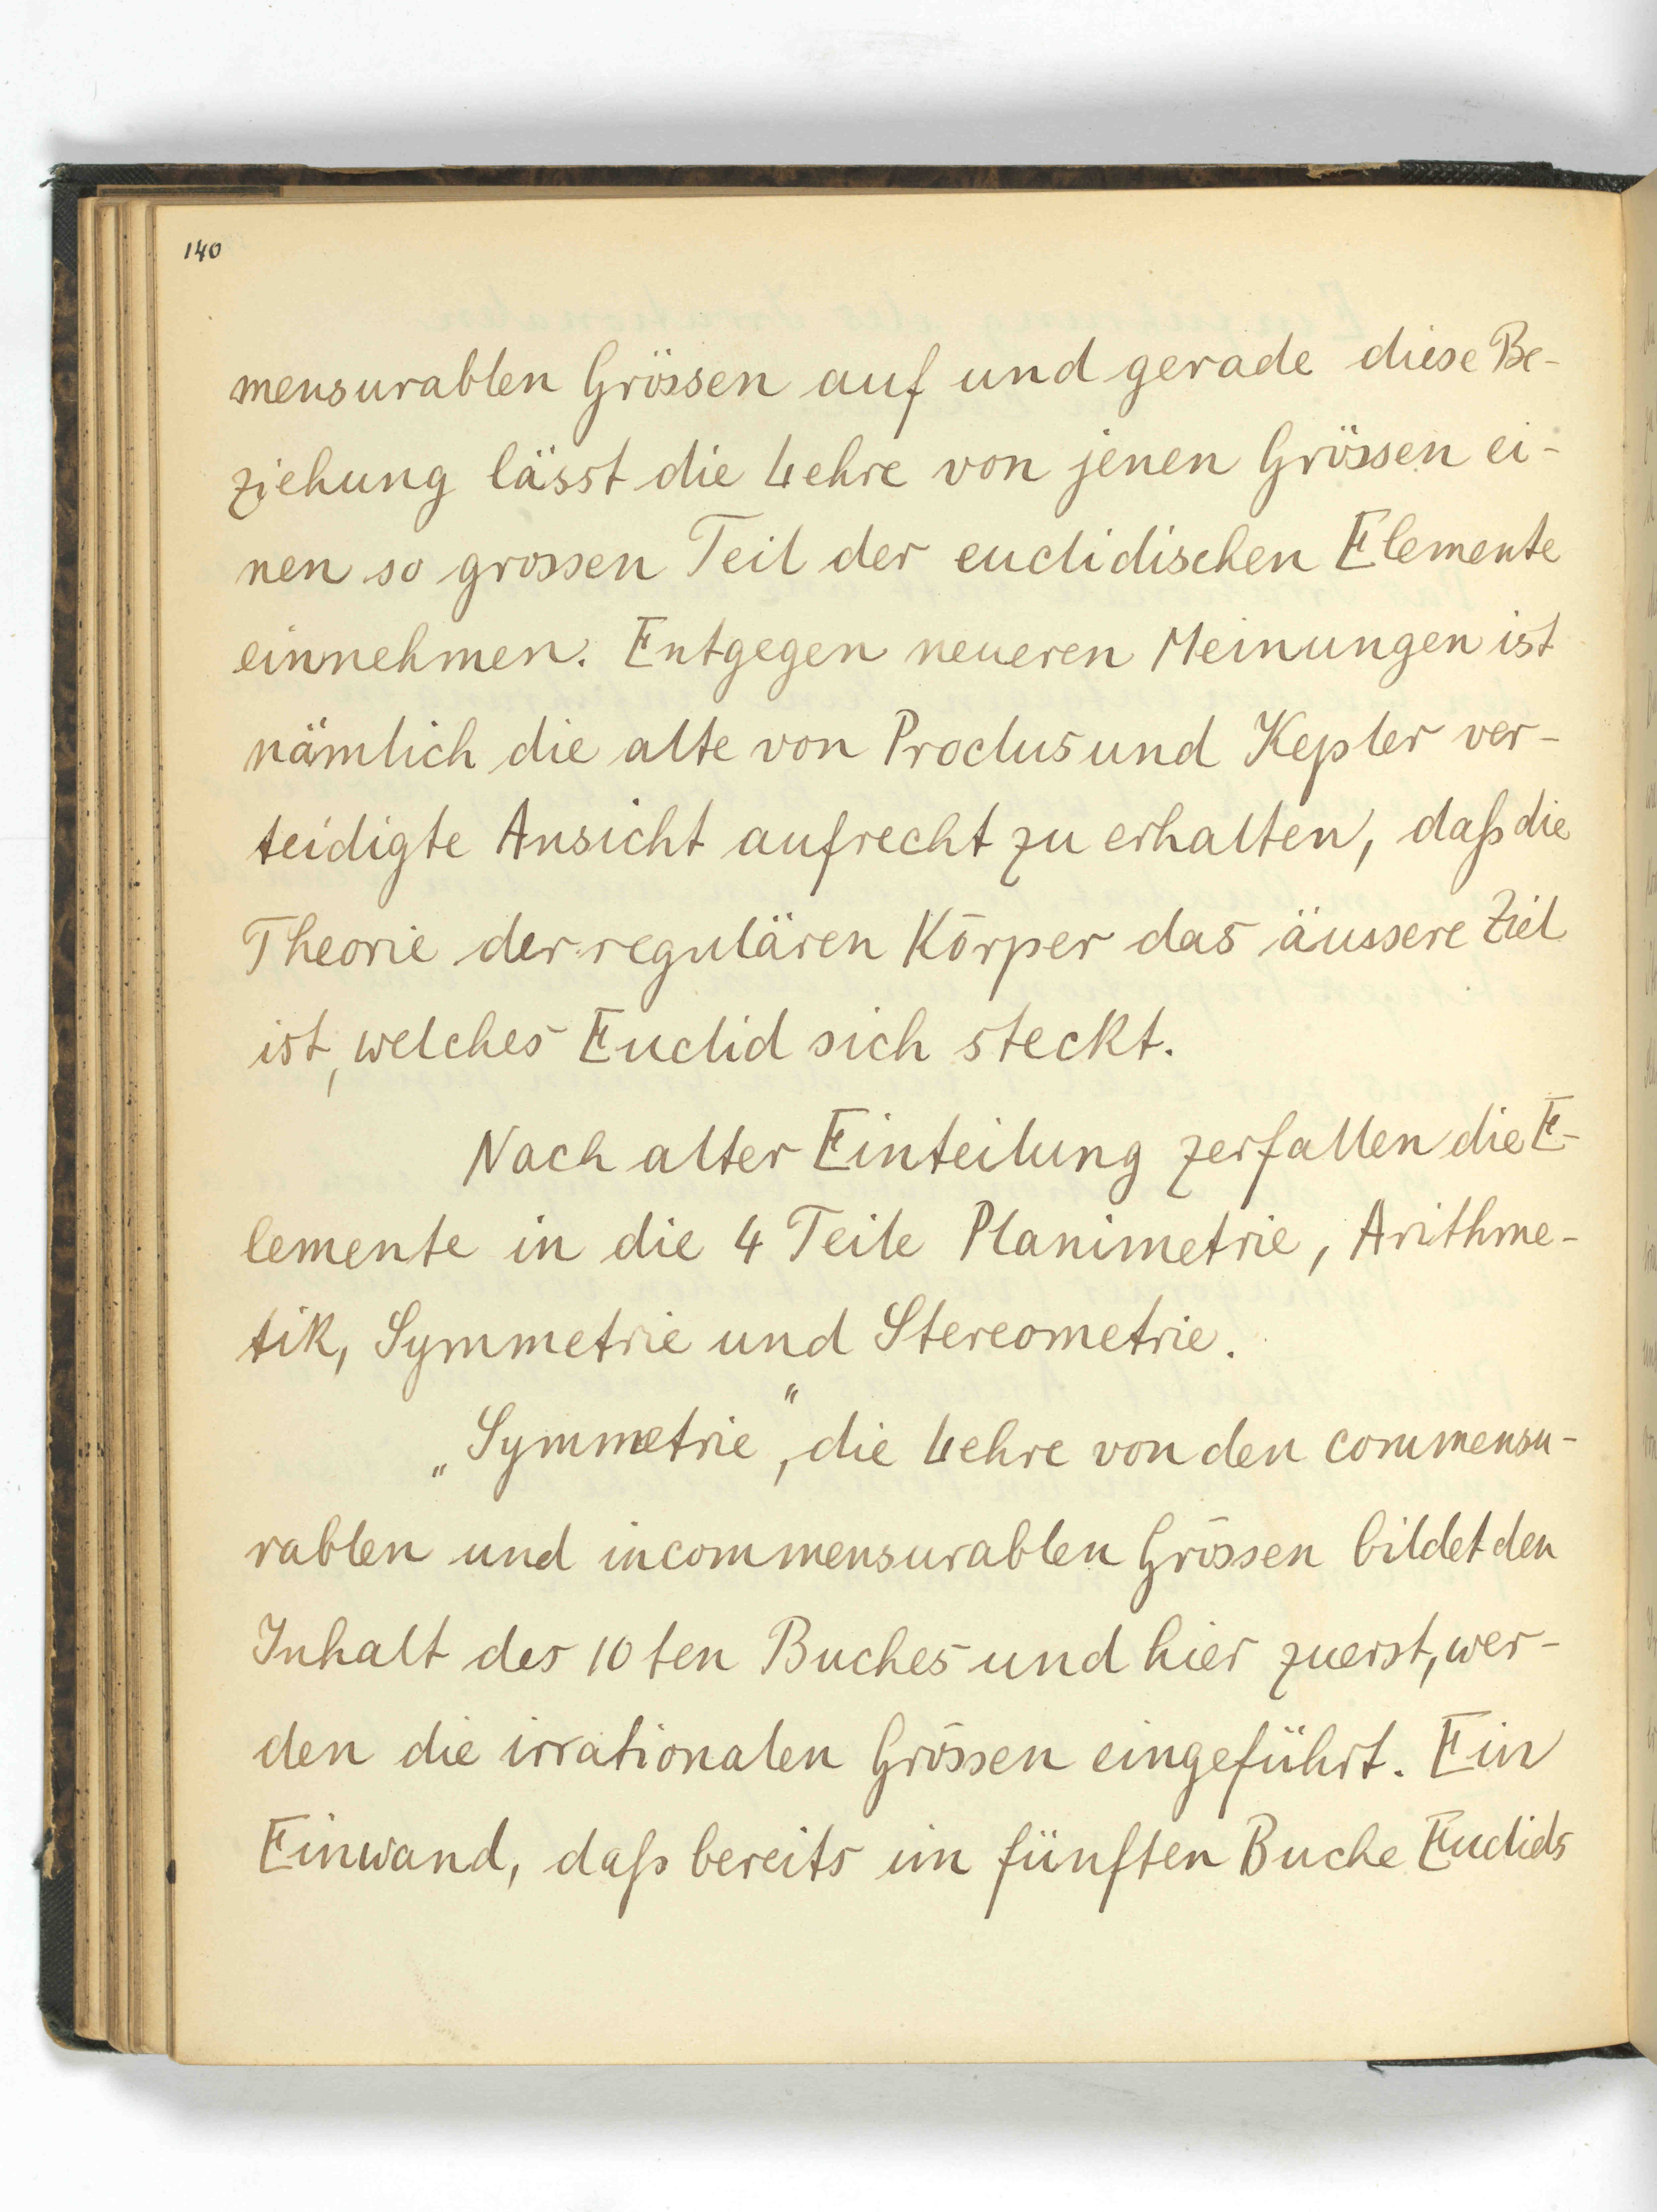 140
mensurablen Grössen auf und gerade diese Be-
ziehung lässt die Lehre von jenen Grössen ei-
nen so grossen Teil der euclidischen Elemente
einnehmen. Entgegen neueren Meinungen ist
nämlich die alte von Proclus und Kepler ver-
teidigte Ansicht aufrecht zu erhalten, daß die
Theorie der regulären Körper das äussere Ziel
ist, welches Euclid sich steckt.
Nach alter Einteilung zerfallen die E-
lemente in die 4 Teile Planimetrie, Arithme-
tik, Symmetrie und Stereometrie.
„Symmetrie“, die Lehre von den commensu-
rablen und incommensurablen Grössen bildet den
Inhalt des 10ten Buches und hier zuerst, wer-
den die irrationalen Grössen eingeführt. Ein
Einwand, daß bereits im fünften Buche Euclids